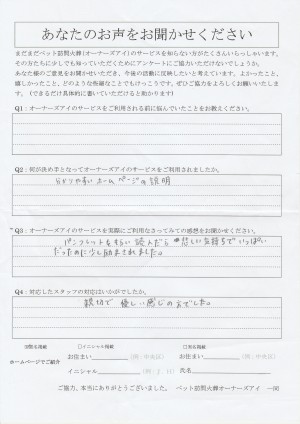 あなたのお声をお聞かせください
まだまだペット訪問火葬(オーナーズアイ)のサービスを知らない方がたくさんいらっしゃいます。
その方たちに少しでも知っていただくためにアンケートにご協力いただけないでしょうか。
あなた様のご意見をお聞かせいただき、今後の活動に反映したいと考えています。よかったこと、
嬉しかったこと、どのような些細なことでもけっこうです。ぜひご協力をよろしくお願いいたしま
す。（できるだけ具体的に書いていただけると助かります）
Q1：オーナーズアイのサービスをご利用される前に悩んでいたことをお教えください。
Q2：何が決め手となってオーナーズアイのサービスをご利用されましたか。
分かりやすいホームページの説明
Q3：オーナーズアイのサービスを実際にご利用なさってみての感想をお聞かせください。
パンフレットをもらい読んだら悲しい気持ちでいっぱい
だったのに少し励まされました。
Q4：対応したスタッフの対応はいかがでしたか。
親切で優しい感じの方でした。
匿名掲載 ○イニシャル掲載 ○実名掲載
ホームページでご紹介 お住まい（例：中央区） お住まい（例：中央区）
イニシャル（例：J・H） 氏名
ご協力、本当にありがとうございました。 ペット訪問火葬オーナーズアイ